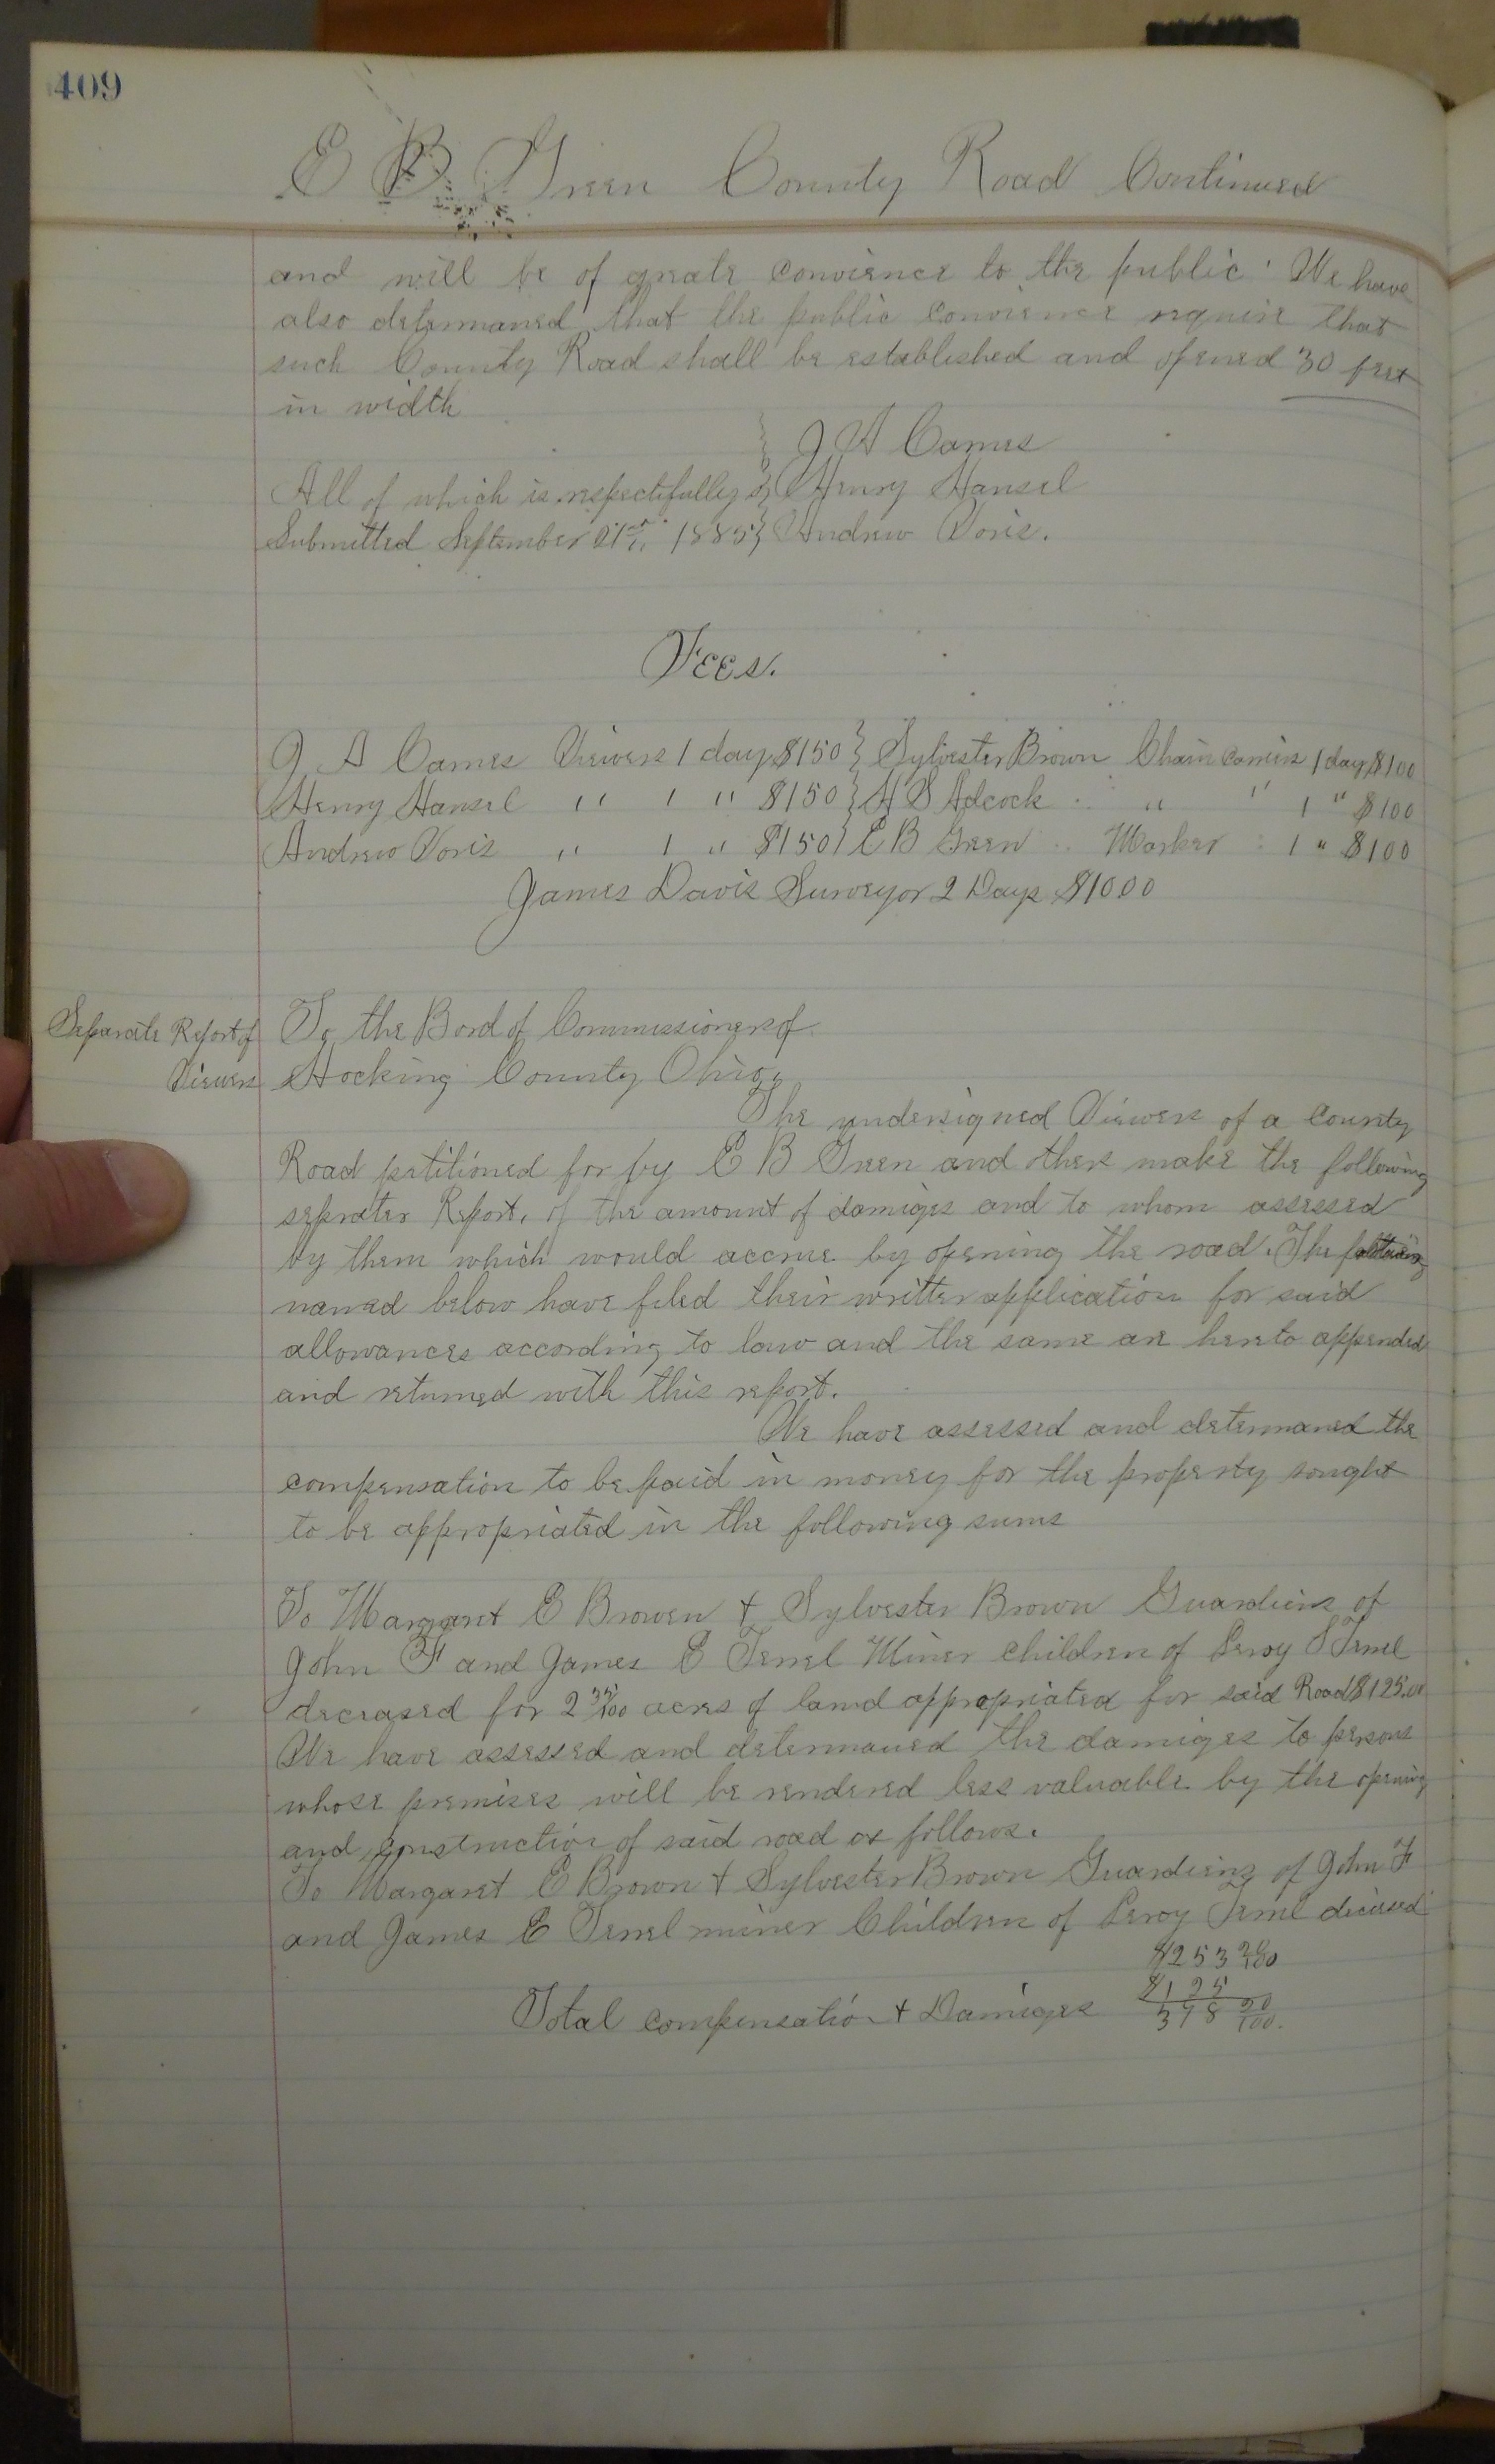 409
E B Green County Road Continued
and will be of greate convience to the public. We have
also determaned that the public convience require that
such County Road shall be established and opened 30 feet
in width
J A Cames
All of which is respectfully } Henry Hansel
Submitted September 21st 1885 } Andrew Voris.
Fees.
J A Cames Viewers 1 day $150 } Sylvester Brown Chain carriers 1 day $100
Henry Hansel " 1 " $150 } H S Adcock " " 1 " $100
Andrew Voris " 1 " $150 } E B Green Marker 1 " $100
James Davis Surveyor 2 Days $1000
Seperate Report of
Viewers
To the Bord of Commissioners of
Hocking County Ohio,
The undersigned Viewers of a County
Road petitioned for by E B Green and others make the following
seprater Report, of the amount of damiges and to whom assessed
by them which would accrue by opening the road. The
named below have filed their written application for said
allowances according to law and the same are hereto appended
and returned with this report.
We have assessed and determaned the
compensation to be paid in money for the property sought
to be appropriated in the following sums
To Margaret E Brown + Sylvester Brown Guardiens of
John F and James E Terrel Miner children of Leroy S Terrel
deceased for 2 35/100 acres of land appropriated for said Road $125.00
We have assessed and determaned the damiges to persons
whose premises will be rendered less valuable by the opening
and construction of said road as follows.
To Margaret E Brown + Sylvester Brown Guardiens of John F
and James E Terrel miner Children of Leroy Terrel decised
$253 20/100
$125
Total compensation + Damiges 378 20/100.